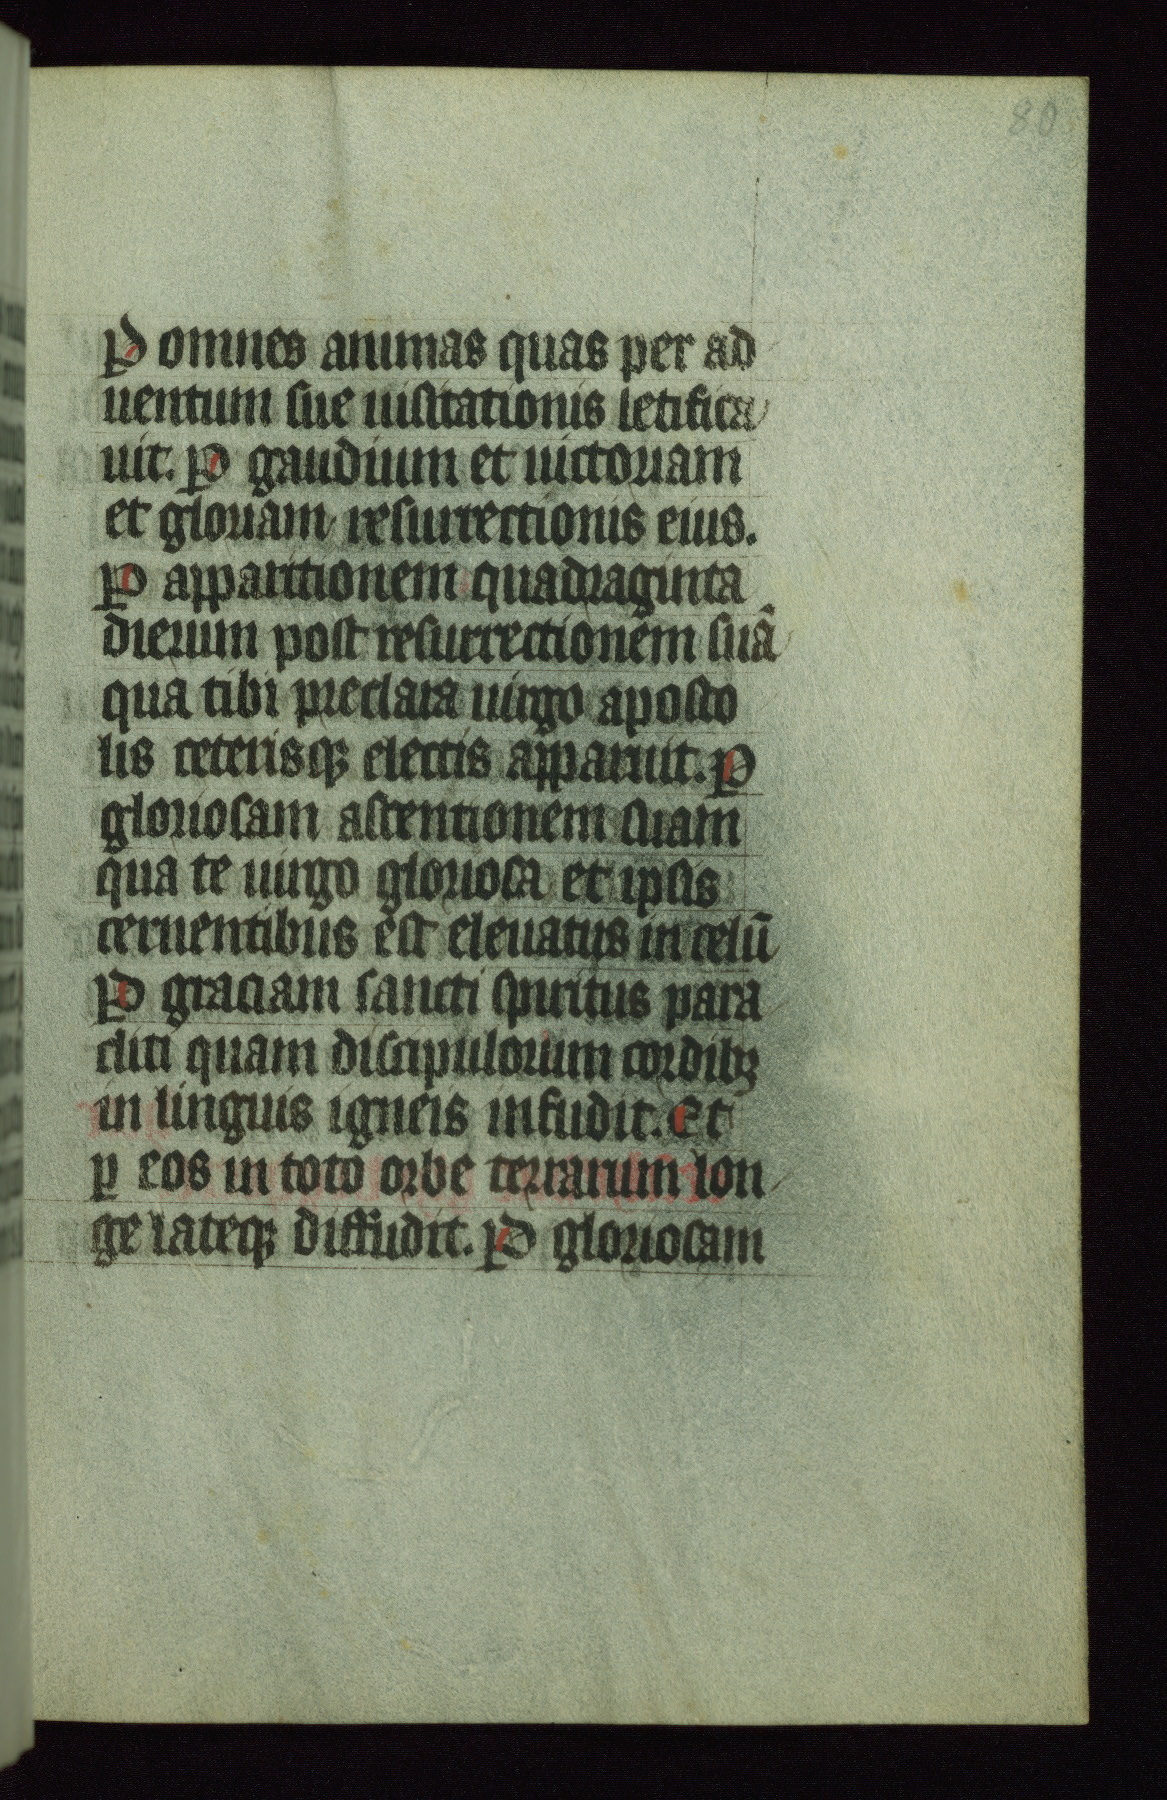 80
Ꝑ omnes animas quas per ad
uentum sue uisitationis letifica
uit. Ꝑ gaudium et uictoriam
et gloriam resurrectionis eius.
Ꝑ apparitionem quadraginta
dierum post resurrectionem suā
qua tibi preclara uirgo aposto
lis ceterisqꝫ electis apparuit. Ꝑ
gloriosam ascentionem suam
qua te uirgo gloriosa et ipsis
cernentibus est eleuatus in celū
Ꝑ graciam sancti spiritus para
cliti quam discipulorum cordibꝫ
in linguis igneis infudit. Et
ꝑ eos in toto orbe terrarum lon
ge lateqꝫ diffudit. Ꝑ gloriosam